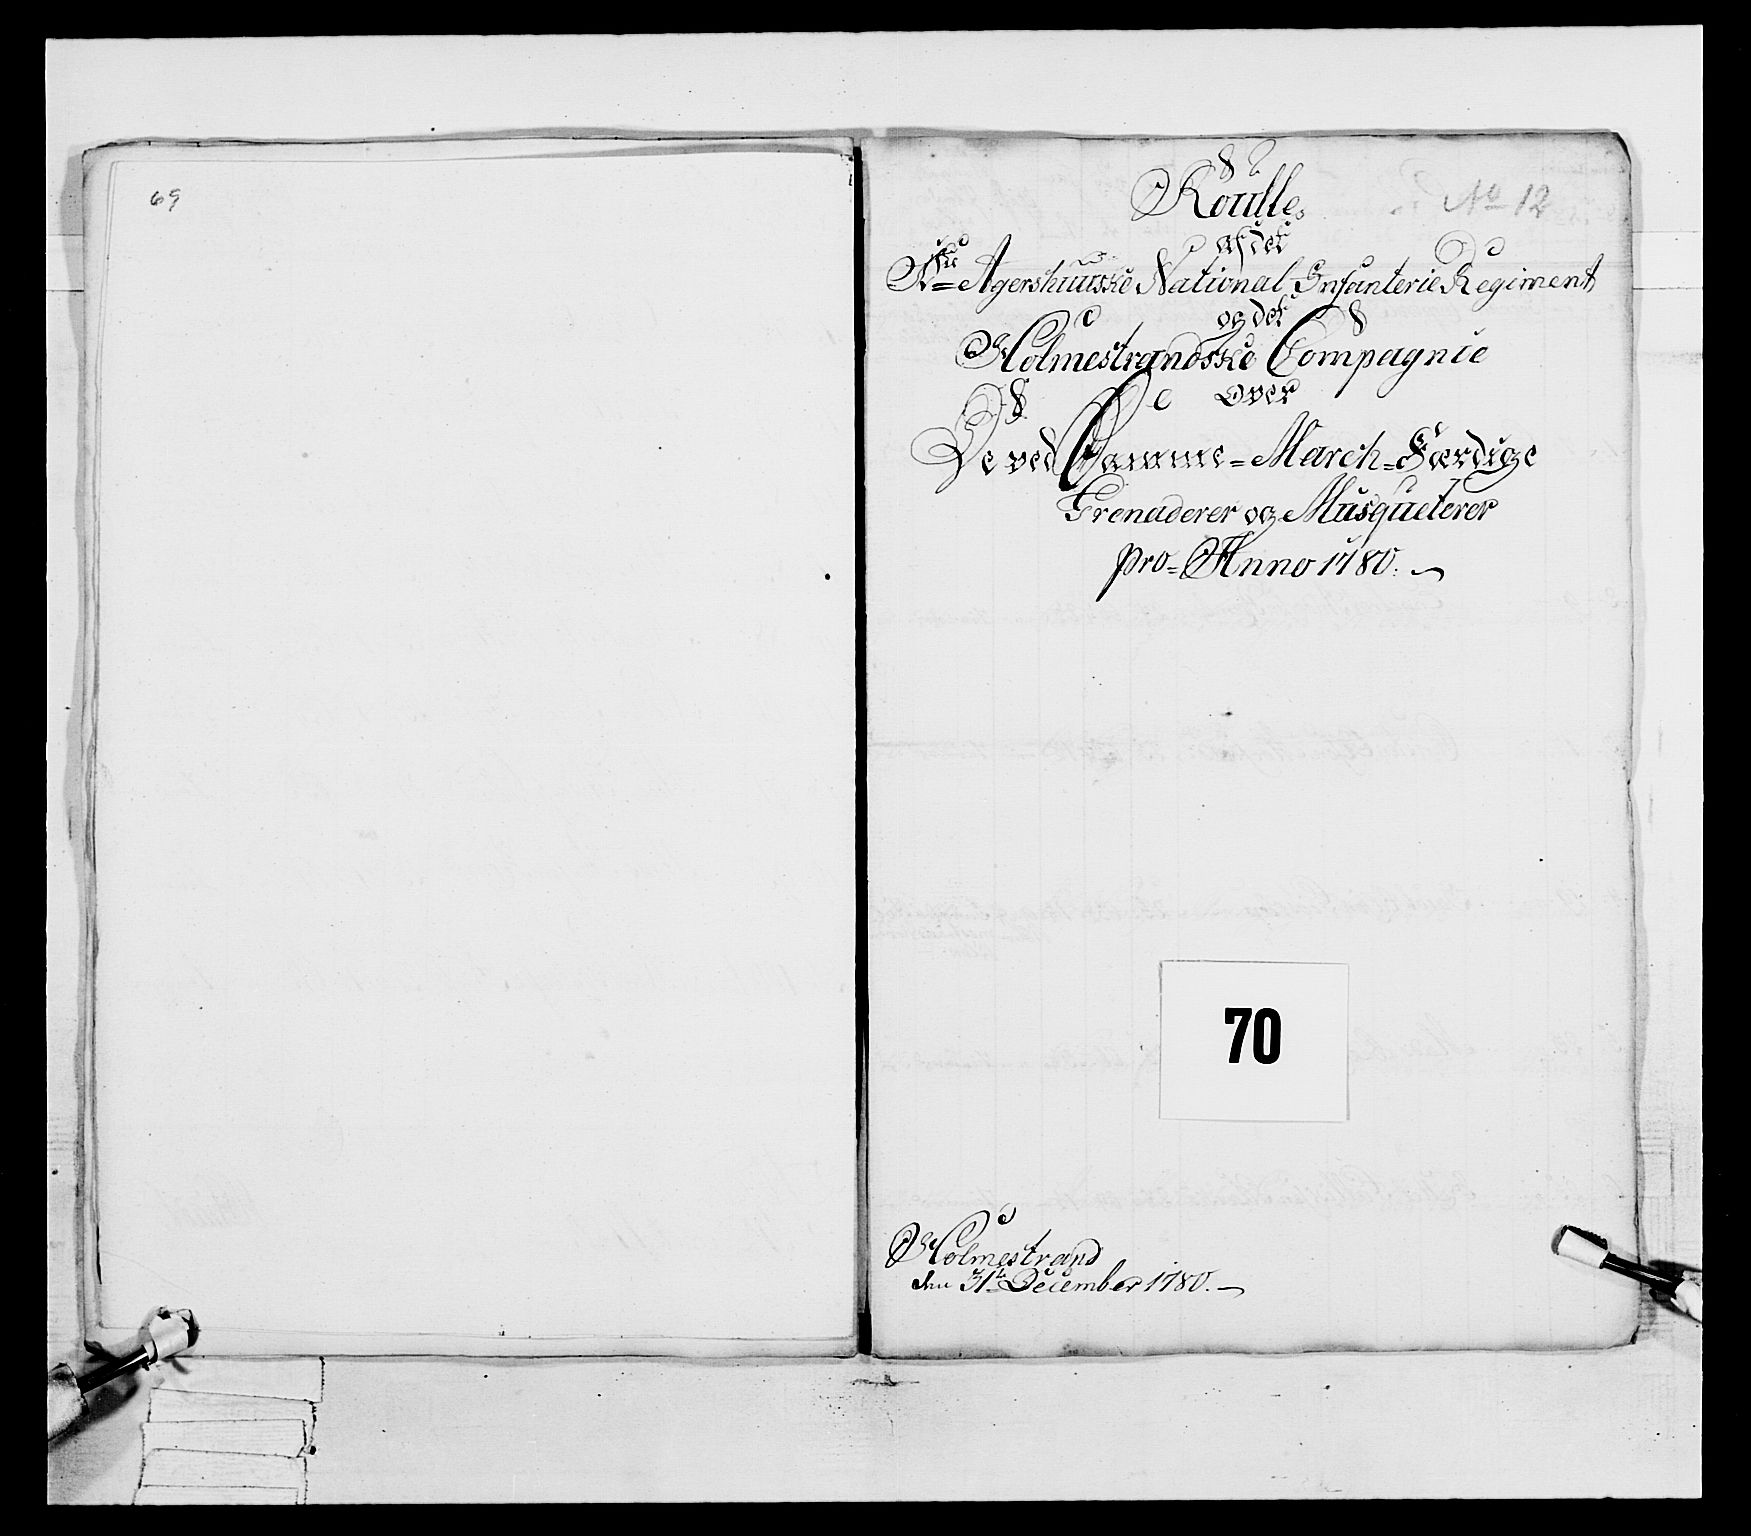 69
No 12
Roulle
af det
1ste Agershuuske National Infanterie Regiment
og det
Holmestrandske Compagnie
over
De ved Stamme-March-Færdige
Grenaderer og Musqueterer
pro Anno 1780.
70
Holmestrand
den 31t December 1780.